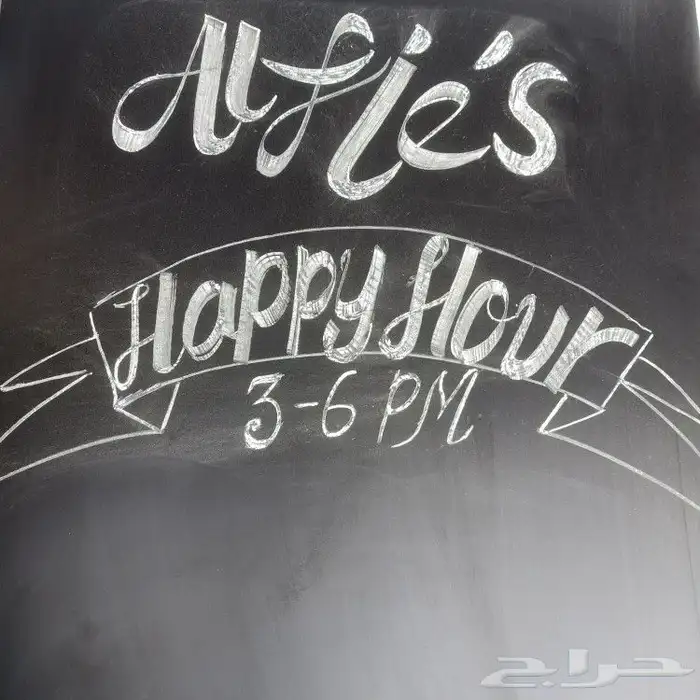 Alfie's
Happy Hour
3-6 PM
حراج